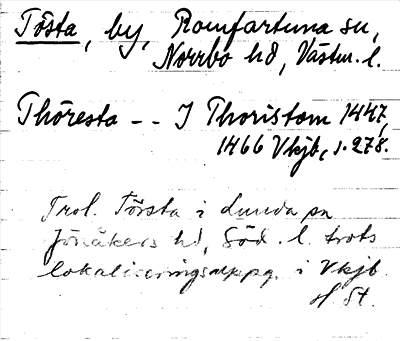 Tösta, by, Romfartuna sn,
Norrbo hd, Västm. l.
Thöresta -- I Thoristom 1447,
1466 Vkjb, s. 278.
Trol. Törsta i Lunda sn
Jönåkers hd, Söd. l. trots
lokaliseringsuppg. i Vkjb.
H St.